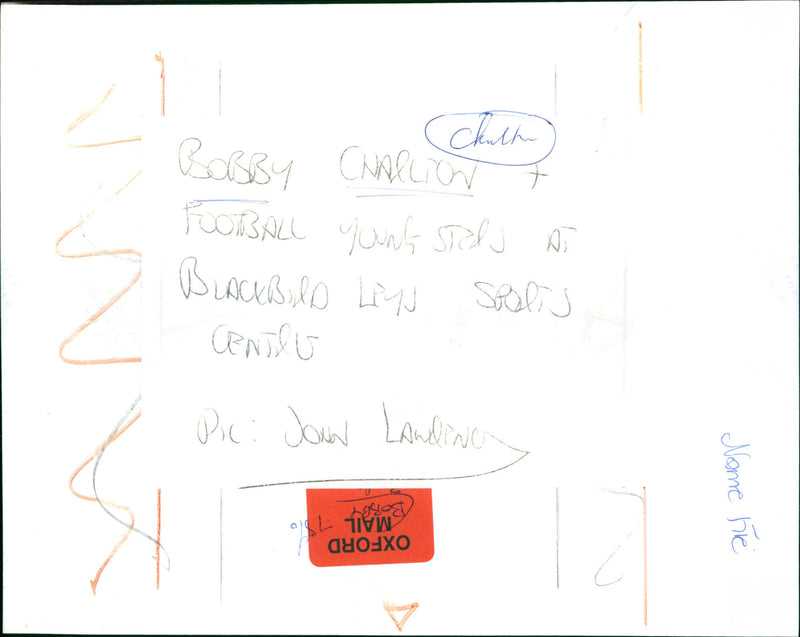 Charlton
BOBBY CHARLTON +
FOOTBALL YOUNGSTERS AT
BLACKBIRD LEYS SPORTS
CENTRE
PIC: JOHN LAWRENCE
Name File
OXFORD
MAIL
BOBBY